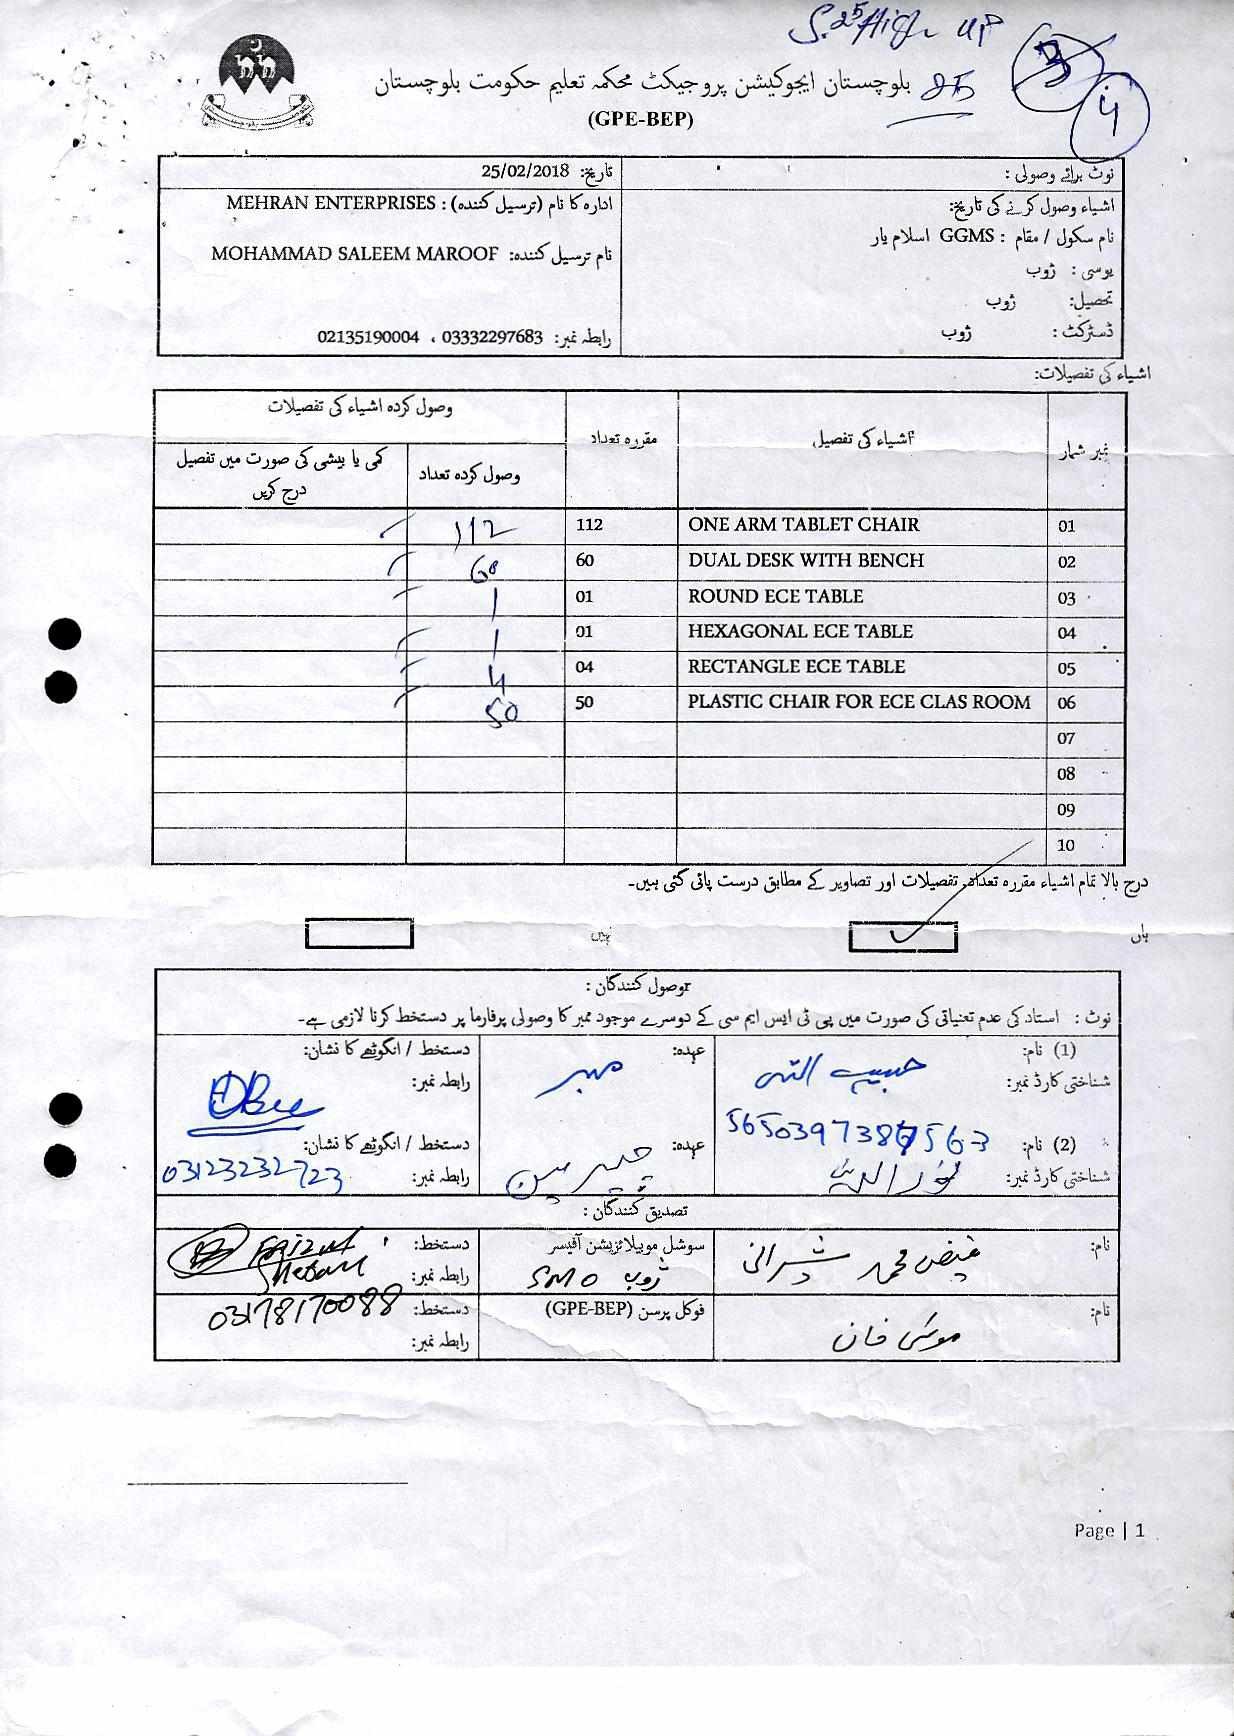 S.25 High up
3
4
بلوچستان ایجوکیشن پروجیکٹ محکمہ تعلیم حکومت بلوچستان
(GPE-BEP)
نوٹ برائے وصولی :
تاریخ: 25/02/2018
اشیاء وصول کرنے کی تاریخ:
ادارہ کا نام (ترسیل کنندہ) : MEHRAN ENTERPRISES
نام سکول / مقام : GGMS اسلام یار
نام ترسیل کنندہ: MOHAMMAD SALEEM MAROOF
یوسی : ژوب
تحصیل: ژوب
ڈسٹرکٹ : ژوب
رابطہ نمبر: 03332297683 ، 02135190004
اشیاء کی تفصیلات:
نمبر شمار اشیاء کی تفصیل مقررہ تعداد وصول کردہ اشیاء کی تفصیلات
وصول کردہ تعداد کمی یا بیشی کی صورت میں تفصیل درج کریں
01 ONE ARM TABLET CHAIR 112 112
02 DUAL DESK WITH BENCH 60 60
03 ROUND ECE TABLE 01 1
04 HEXAGONAL ECE TABLE 01 1
05 RECTANGLE ECE TABLE 04 4
06 PLASTIC CHAIR FOR ECE CLAS ROOM 50 50
07
08
09
10
درج بالا تمام اشیاء مقررہ تعداد، تفصیلات اور تصاویر کے مطابق درست پائی گئی ہیں۔
ہاں نہیں
وصول کنندگان :
نوٹ : استاد کی عدم تعیناتی کی صورت میں پی ٹی ایس ایم سی کے دوسرے موجود ممبر کا وصولی پرفارما پر دستخط کرنا لازمی ہے۔
(1) نام: حبیب اللہ عہدہ: ممبر دستخط / انگوٹھے کا نشان:
شناختی کارڈ نمبر: رابطہ نمبر:
(2) نام: عہدہ: چیئرمین دستخط / انگوٹھے کا نشان:
شناختی کارڈ نمبر: نور الدین رابطہ نمبر: 03123232723
تصدیق کنندگان :
نام: فیض محمد شیرانی سوشل موبیلائزیشن آفیسر دستخط:
SMO ژوب رابطہ نمبر:
نام: موسیٰ خان فوکل پرسن (GPE-BEP) دستخط: 03178170088
رابطہ نمبر:
Page | 1